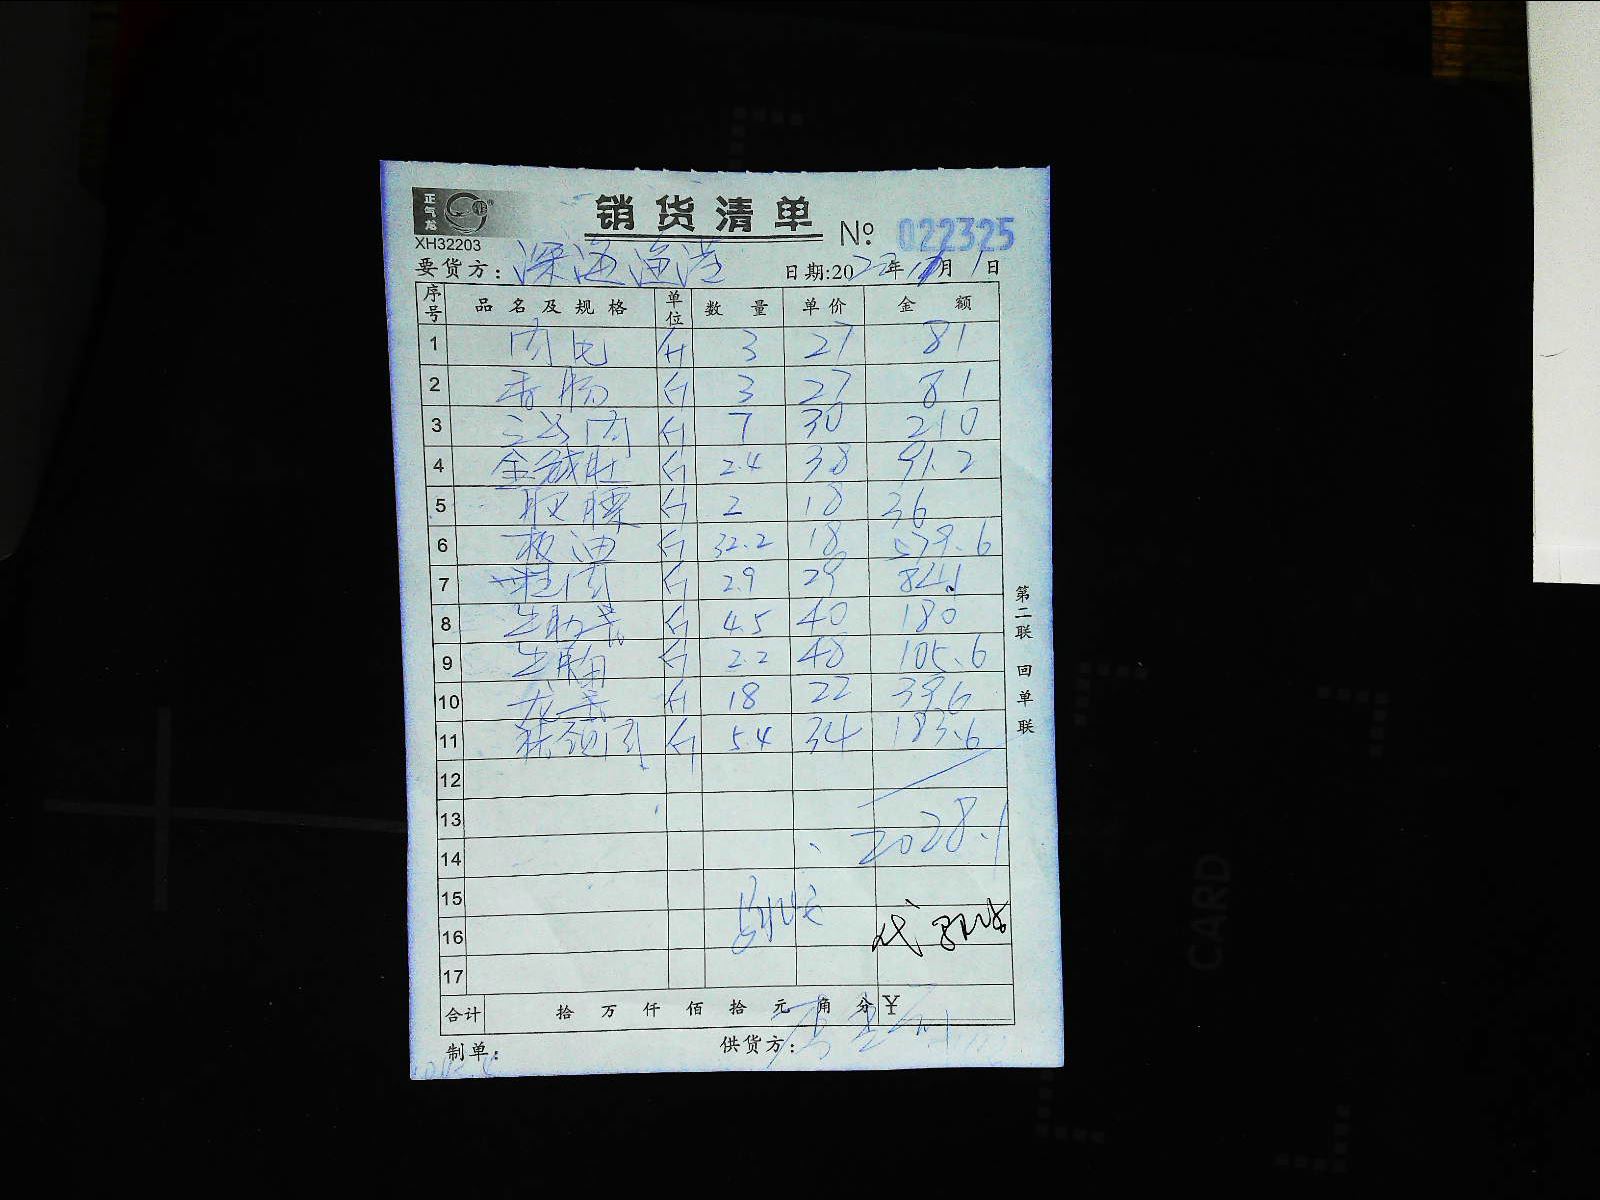 正气龙
销货清单
XH32203
№ 022325
要货方: 深海渔港 日期:2022年 月1日
序号 品名及规格 单位 数量 单价 金额
1 肉 斤 3 27 81
2 香肠 斤 3 27 81
3 肉 斤 7 30 210
4 金钱肚 斤 2.4 38 91.2
5 斤 2 18 36
6 板油 斤 32.2 18 579.6
7 肉 斤 2.9 29 84.1
8 斤 4.5 40 180
9 斤 2.2 48 105.6
10 龙骨 斤 18 22 396
11 肉 斤 5.4 34 183.6
12
13
2028.1
14
15
16 代
17
合计 拾 万 仟 佰 拾 元 角 分 ¥
制单: 供货方:
第二联 回单联
CARD